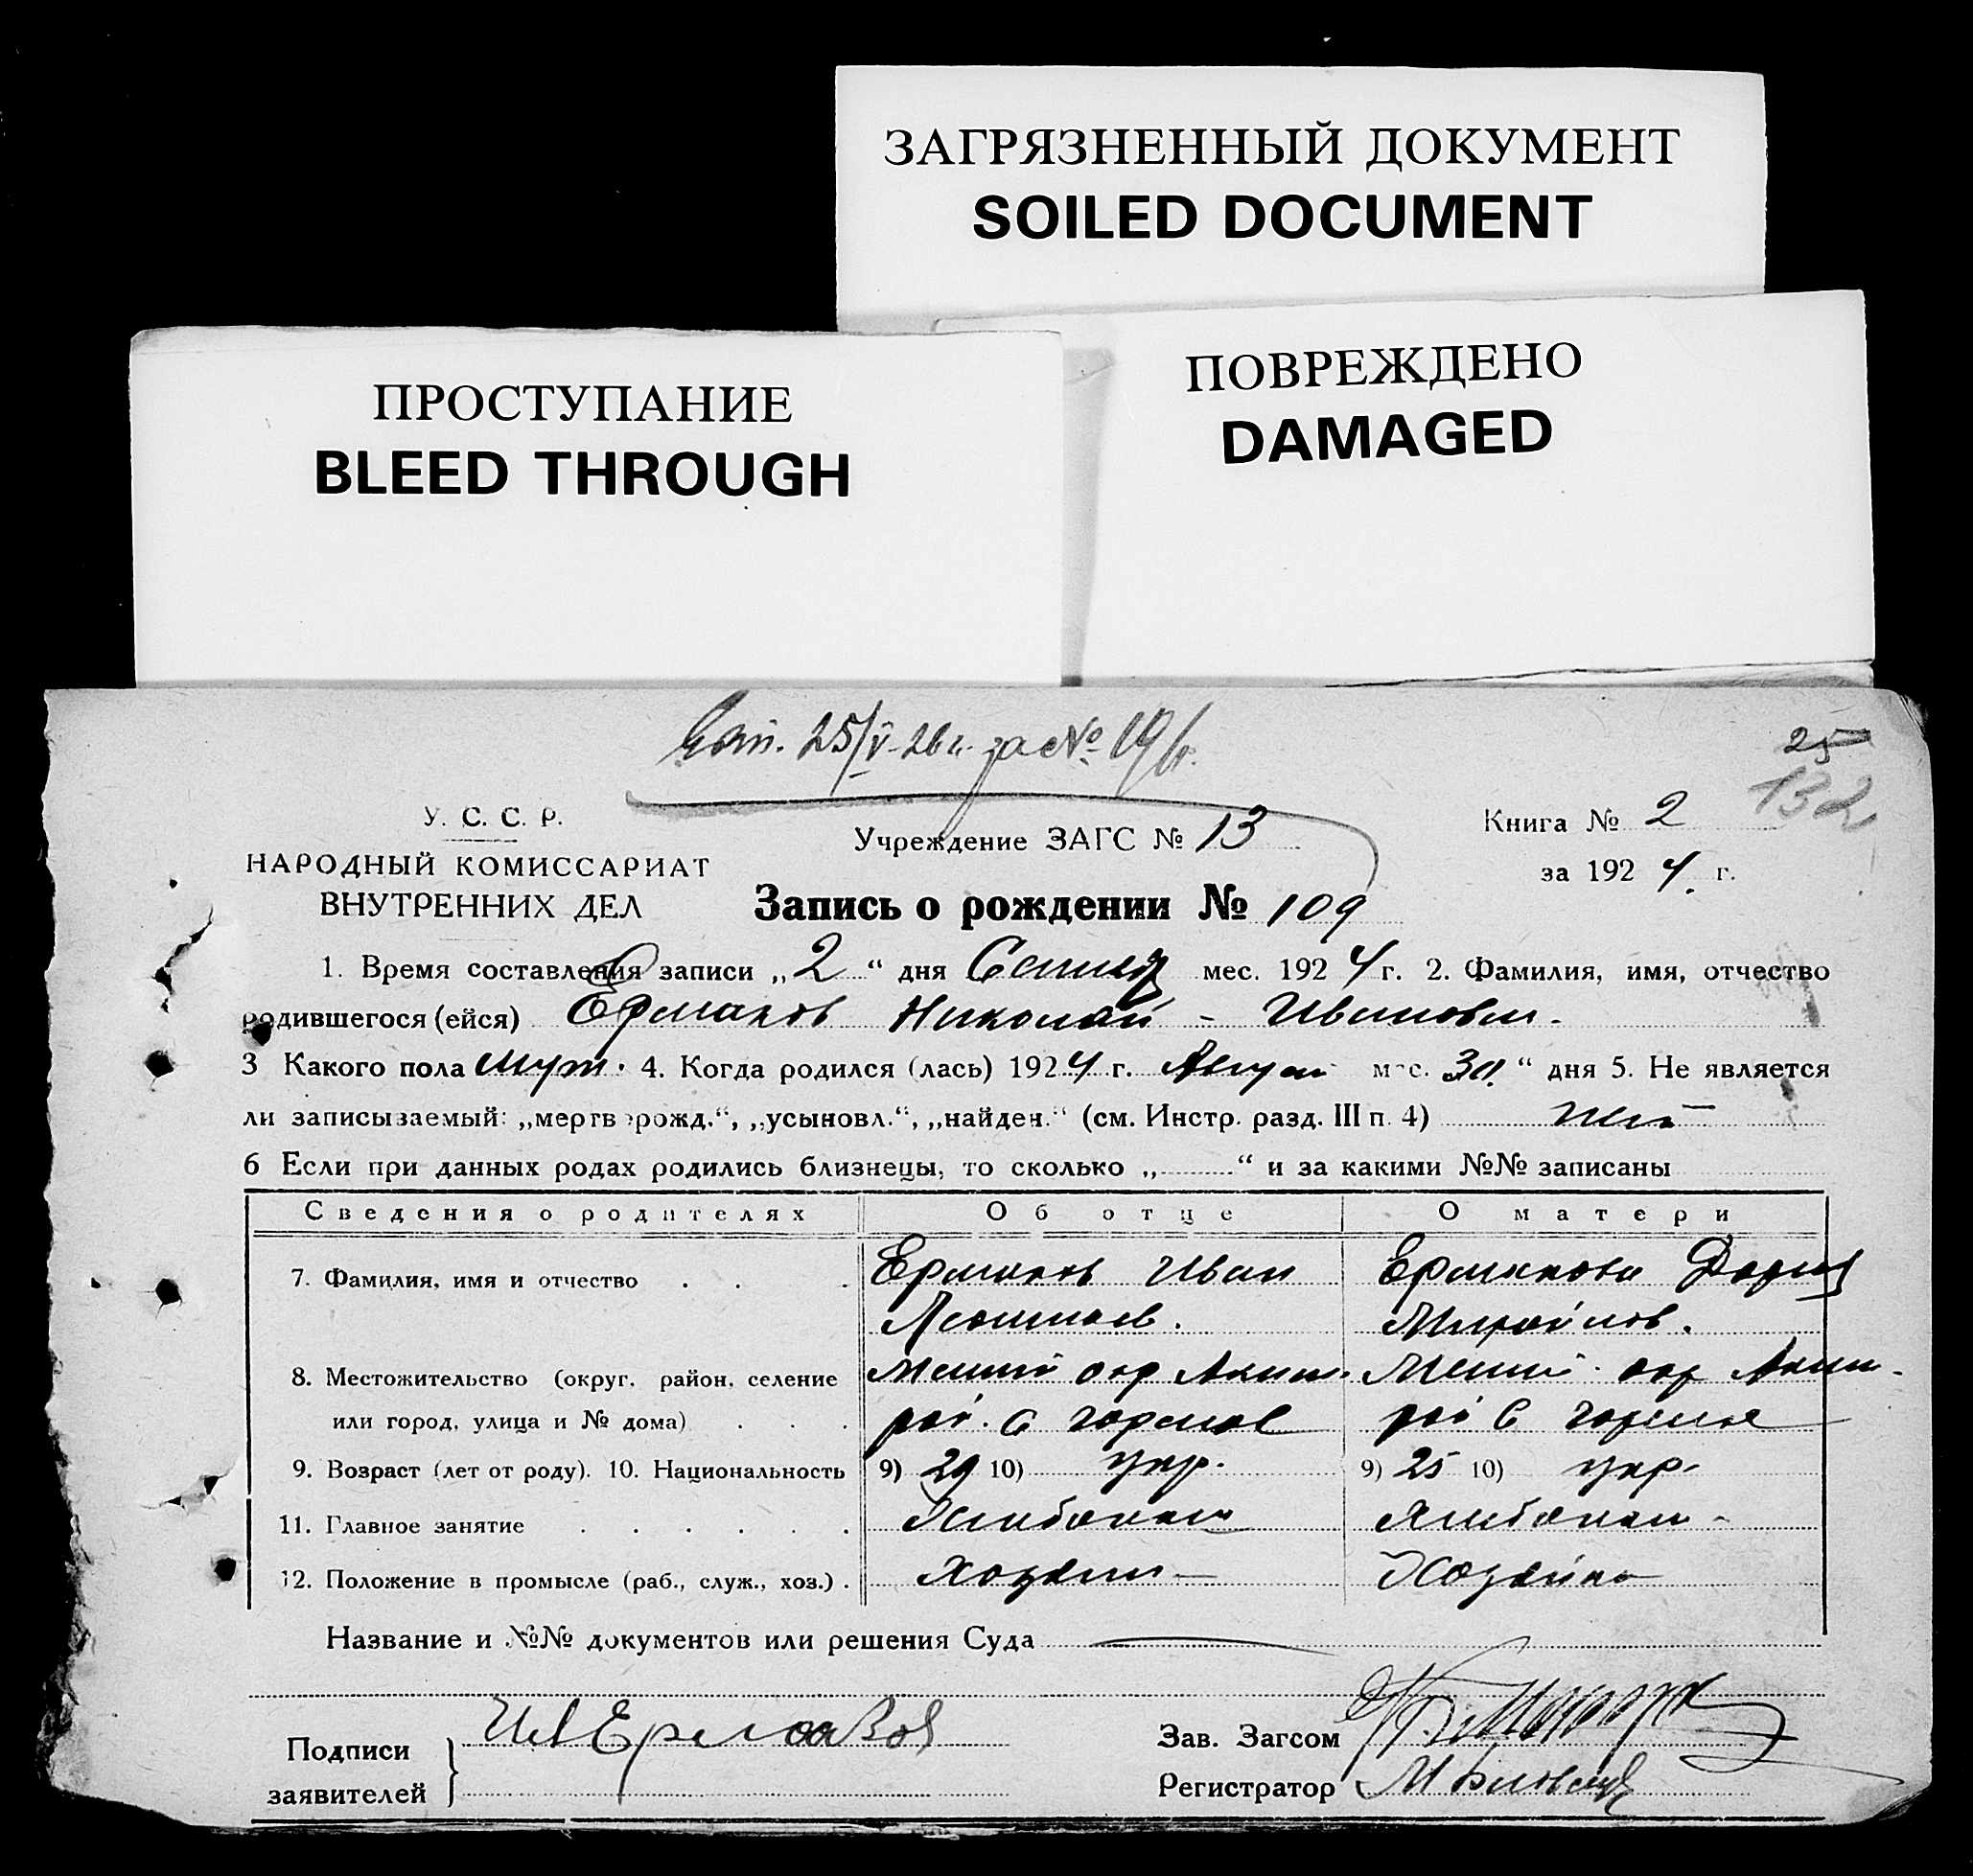 ЗАГРЯЗНЕННЫЙ ДОКУМЕНТ
SOILED DOCUMENT
ПРОСТУПАНИЕ
BLEED THROUGH
ПОВРЕЖДЕНО
DAMAGED
25/V-26 г. за №
25
132
У. С. С. Р.
НАРОДНЫЙ КОМИССАРИАТ
ВНУТРЕННИХ ДЕЛ
Учреждение ЗАГС № 13
Книга № 2
за 1924 г.
Запись о рождении № 109
1. Время составления записи „2“ дня мес. 1924 г. 2. Фамилия, имя, отчество
родившегося (ейся) Ермаков Николай - Иванов.
3 Какого пола муж. 4. Когда родился (лась) 1924 г. Август мес. 30 “ дня 5. Не является
ли записываемый: „мертворожд.“, „усыновл.“, „найден.“ (см. Инстр. разд. III п. 4) нет
6 Если при данных родах родились близнецы, то сколько „ “ и за какими №№ записаны
Сведения о родителях Об отце О матери
7. Фамилия, имя и отчество Ермаков Иван Ермакова Дария
Михайлов.
8. Местожительство (округ, район, селение Мелит окр Аким. Мелит. окр Аким-
или город, улица и № дома) рай. с рай с
9. Возраст (лет от роду). 10. Национальность 9) 29 10) укр. 9) 25 10) укр.
11. Главное занятие Хлебопаш Хлебопаш-
12. Положение в промысле (раб., служ., хоз.) Хозяин Хозяйка
Название и №№ документов или решения Суда
Подписи
заявителей
Ив Ермаков
Зав. Загсом
Регистратор